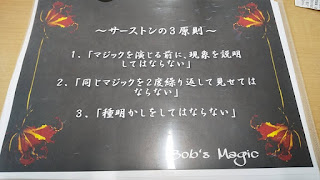 ～サーストンの３原則～
１．「マジックを演じる前に、現象を説明
してはならない」
２．「同じマジックを２度繰り返して見せては
ならない」
３．「種明かしをしてはならない」
Bob's Magic